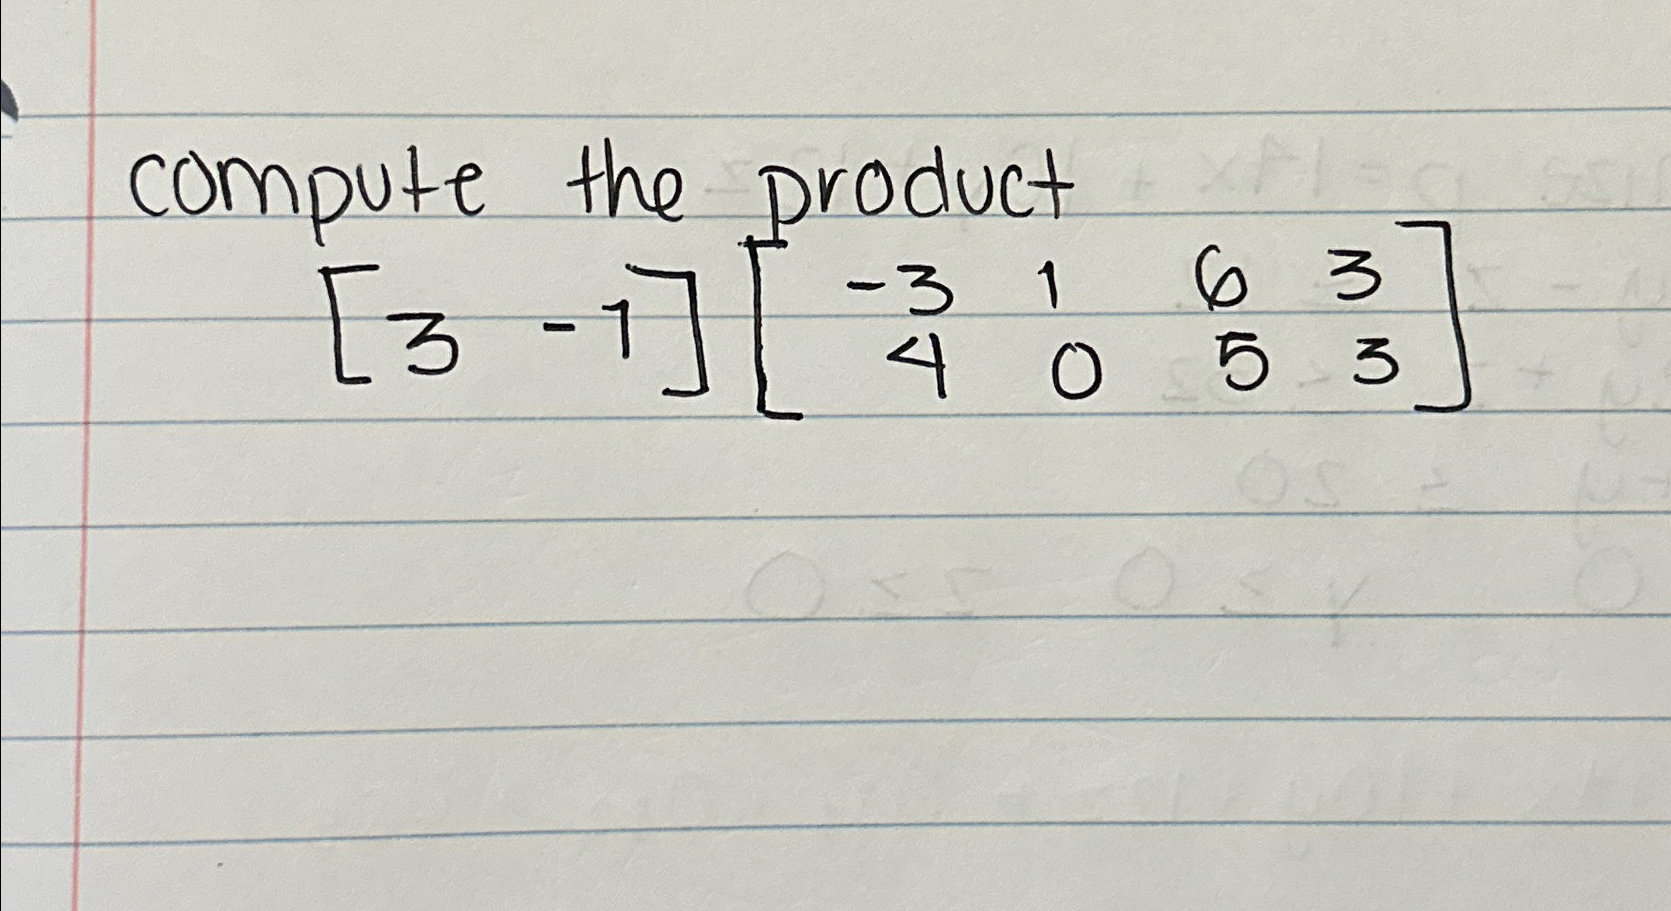 compute the product
[3 -1] [-3 1 6 3
4 0 5 3]